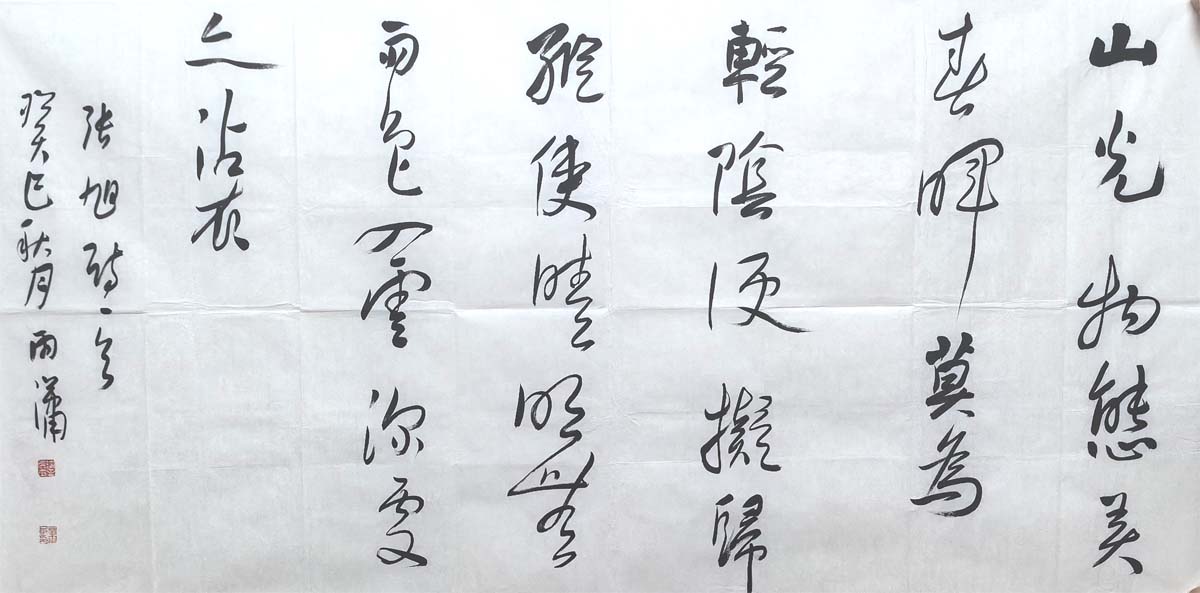 山光物態弄
春暉莫為
輕陰便擬歸
縱使晴明無
雨色入雲深處
亦沾衣
張旭詩一首
癸巳秋月雨瀟